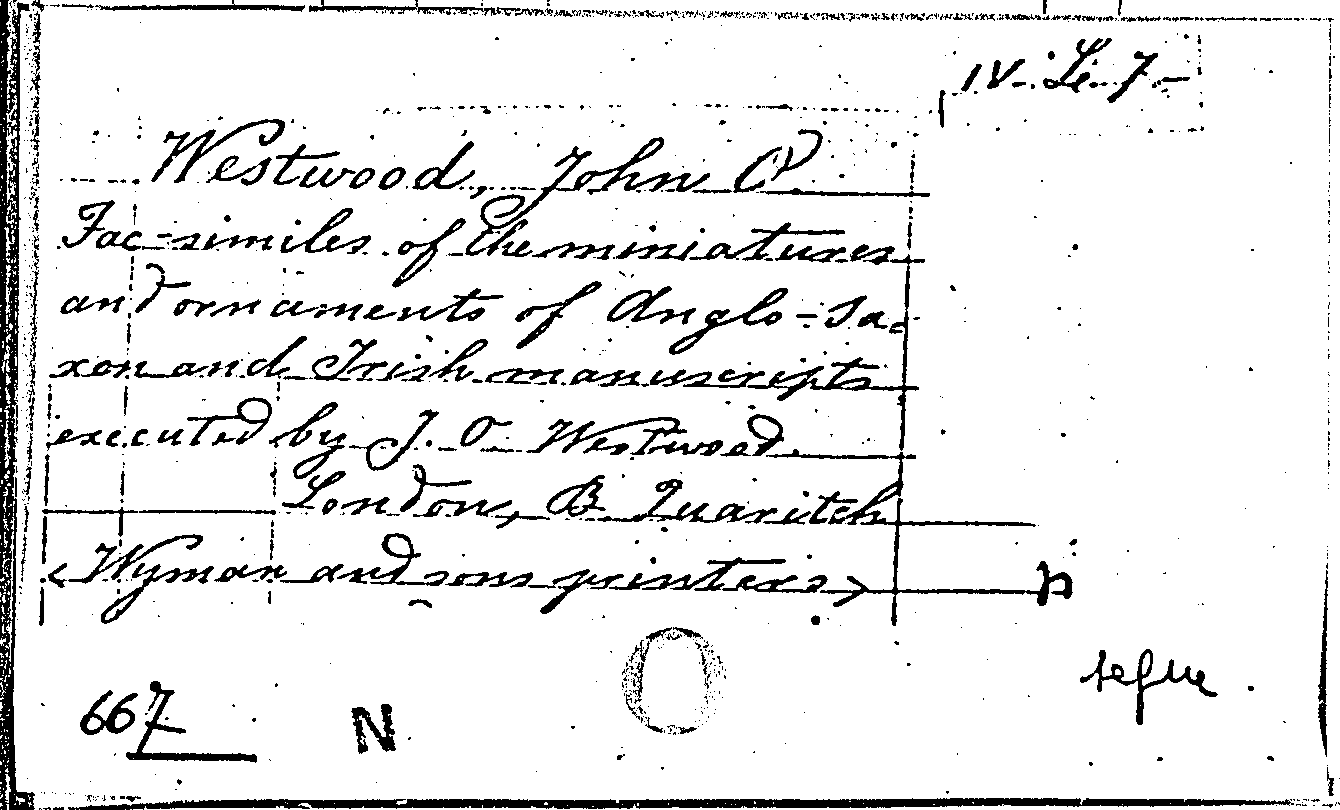 IV. Li. 7-
Westwood, John O.
Fac-similes of the miniatures
and ornaments of Anglo-Sa=
xon and Irish manuscripts
executed by J. O. Westwood.
London, B. Quaritch
<Wyman and sons printers>
segue
667
N
O